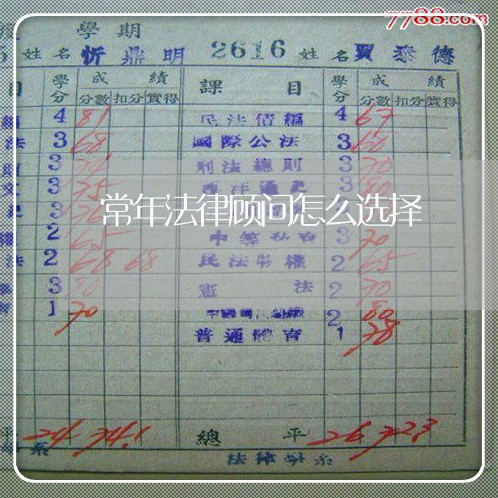 7788.com
學期
姓名 忻鼎明 2616 姓名 賈泰德
目 學分 成績 課目 學分 成績
分數 扣分 實得 分數 扣分 實得
4 81 民法債編 4 67
法 3 68 國際公法 3 60
3 刑法總則 3 70
文 3 75 西洋通史 3 80
常年法律顾问怎么选择
權 2 65 3 70
法 2 68 68 民法物權 2 65
3 80 憲法 2 70
1 70 2 80
普通體育 1 78
平 24 74.1 總平 26 72.3
系 法律學系